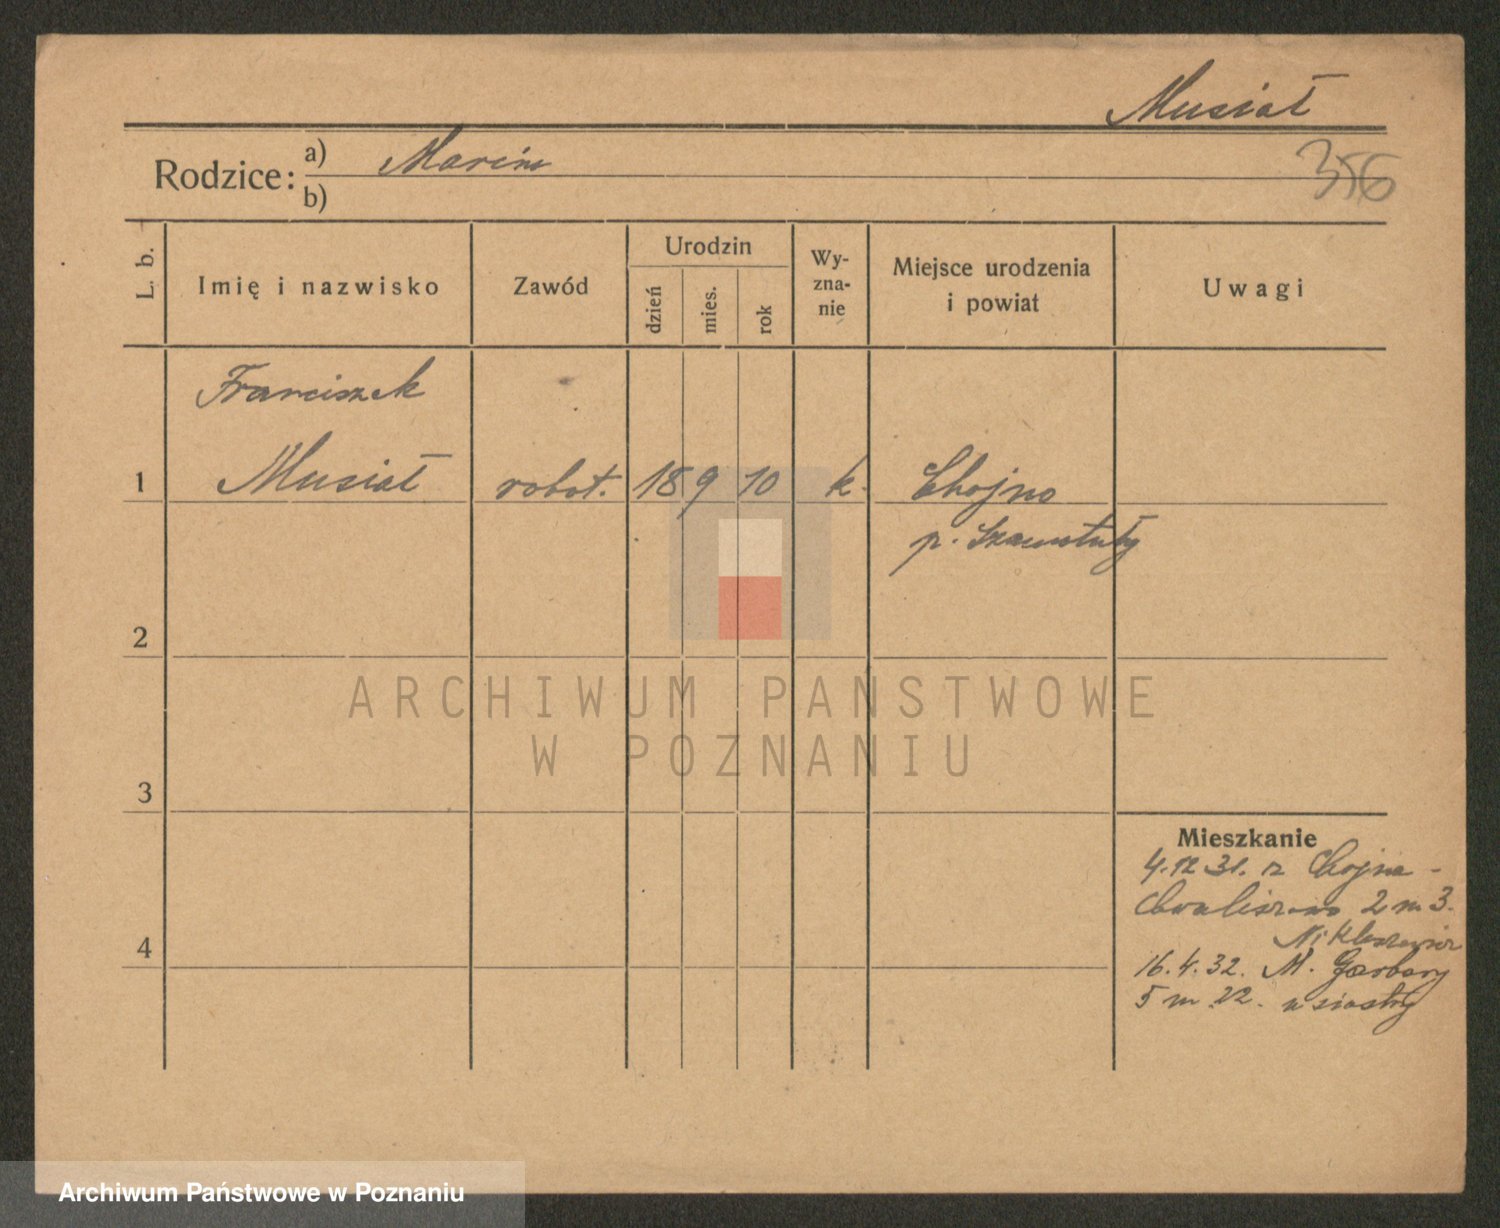 Musiał
Rodzice: a) Marcin
356
b)
L. b.
Imię i nazwisko
Zawód
Urodzin
dzień
mies.
rok
Wy-
zna-
nie
Miejsce urodzenia
i powiat
Uwagi
Franciszek
1 Musiał robot. 18 9 10 k. Chojno
p. Szamotuły
2
ARCHIWUM PAŃSTWOWE
W POZNANIU
3
Mieszkanie
4.12 31. z Chojna -
Chwaliszewo 2 m 3.
4
16.4.32. M. Garbary
5 m 22. u siostry
Archiwum Państwowe w Poznaniu